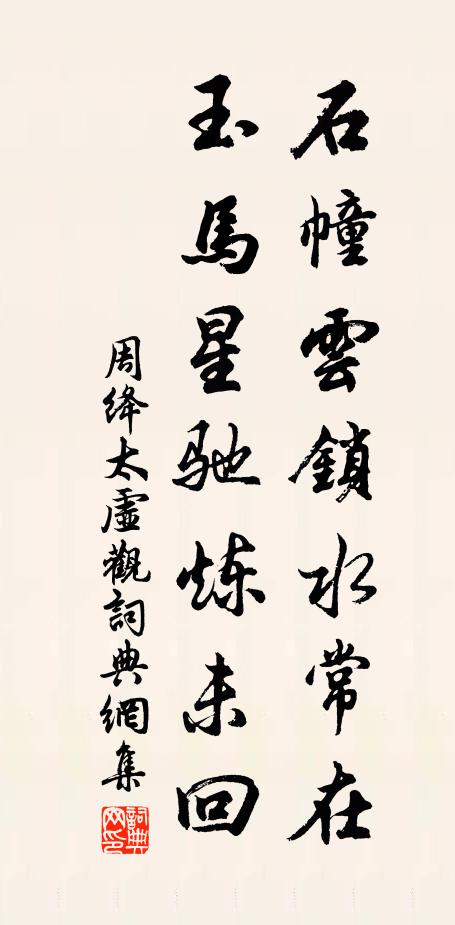 石幢雲鎖水常在
玉馬星馳炼未回
周绛太虛觀詞典網集
詞典網印